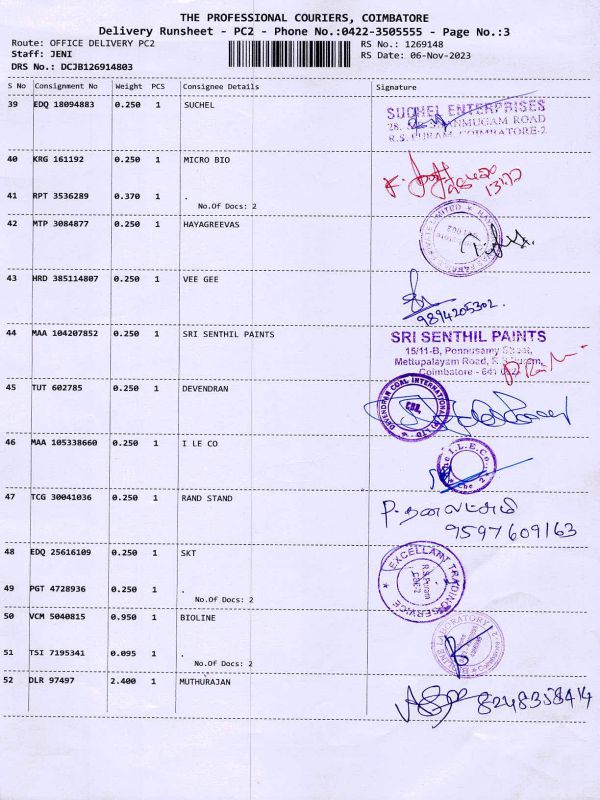 THE PROFESSIONAL COURIERS, COIMBATORE
Delivery Runsheet - PC2 - Phone No.:0422-3505555 - Page No.:3
Route: OFFICE DELIVERY PC2
RS No.: 1269148
Staff: JENI
RS Date: 06-Nov-2023
DRS No.: DCJB126914803
S No Consignment No Weight PCS Consignee Details Signature
39 EDQ 18094883 0.250 1 SUCHEL
SUCHEL ENTERPRISES
SHANMUGAM ROAD
R.S. PURAM, COIMBATORE-2
40 KRG 161192 0.250 1 MICRO BIO
41 RPT 3536289 0.370 1 .
No.Of Docs: 2
42 MTP 3084877 0.250 1 HAYAGREEVAS
43 HRD 385114807 0.250 1 VEE GEE
9894205302.
44 MAA 104207852 0.250 1 SRI SENTHIL PAINTS
SRI SENTHIL PAINTS
15/11-B, Ponnusamy Street,
Mettupalayam Road, R.S.Puram,
Coimbatore - 641 002
45 TUT 602785 0.250 1 DEVENDRAN
DEVENDRAN COAL INTERNATIONAL (P) LTD
CBE.
46 MAA 105338660 0.250 1 I LE CO
I.L.E.Co.
Cbe 2
47 TCG 30041036 0.250 1 RAND STAND
9597609163
48 EDQ 25616109 0.250 1 SKT
EXCELLANT TRADING SERVICE
R.S.Puram
CBE-2
49 PGT 4728936 0.250 1 .
No.Of Docs: 2
50 VCM 5040815 0.950 1 BIOLINE
BIOLINE LABORATORY
51 TSI 7195341 0.095 1 .
No.Of Docs: 2
52 DLR 97497 2.400 1 MUTHURAJAN
8248358414